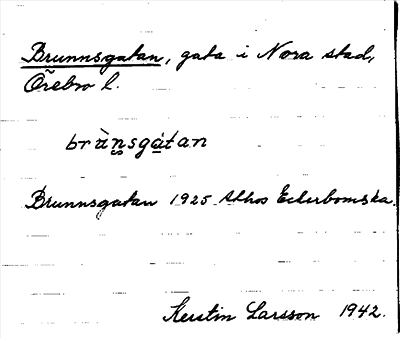 Brunnsgatan, gata i Nora stad,
Örebro l.
brùn̥sgạtan
Brunnsgatan 1925 Athos Ecklerbomska.
Kerstin Larsson 1942.